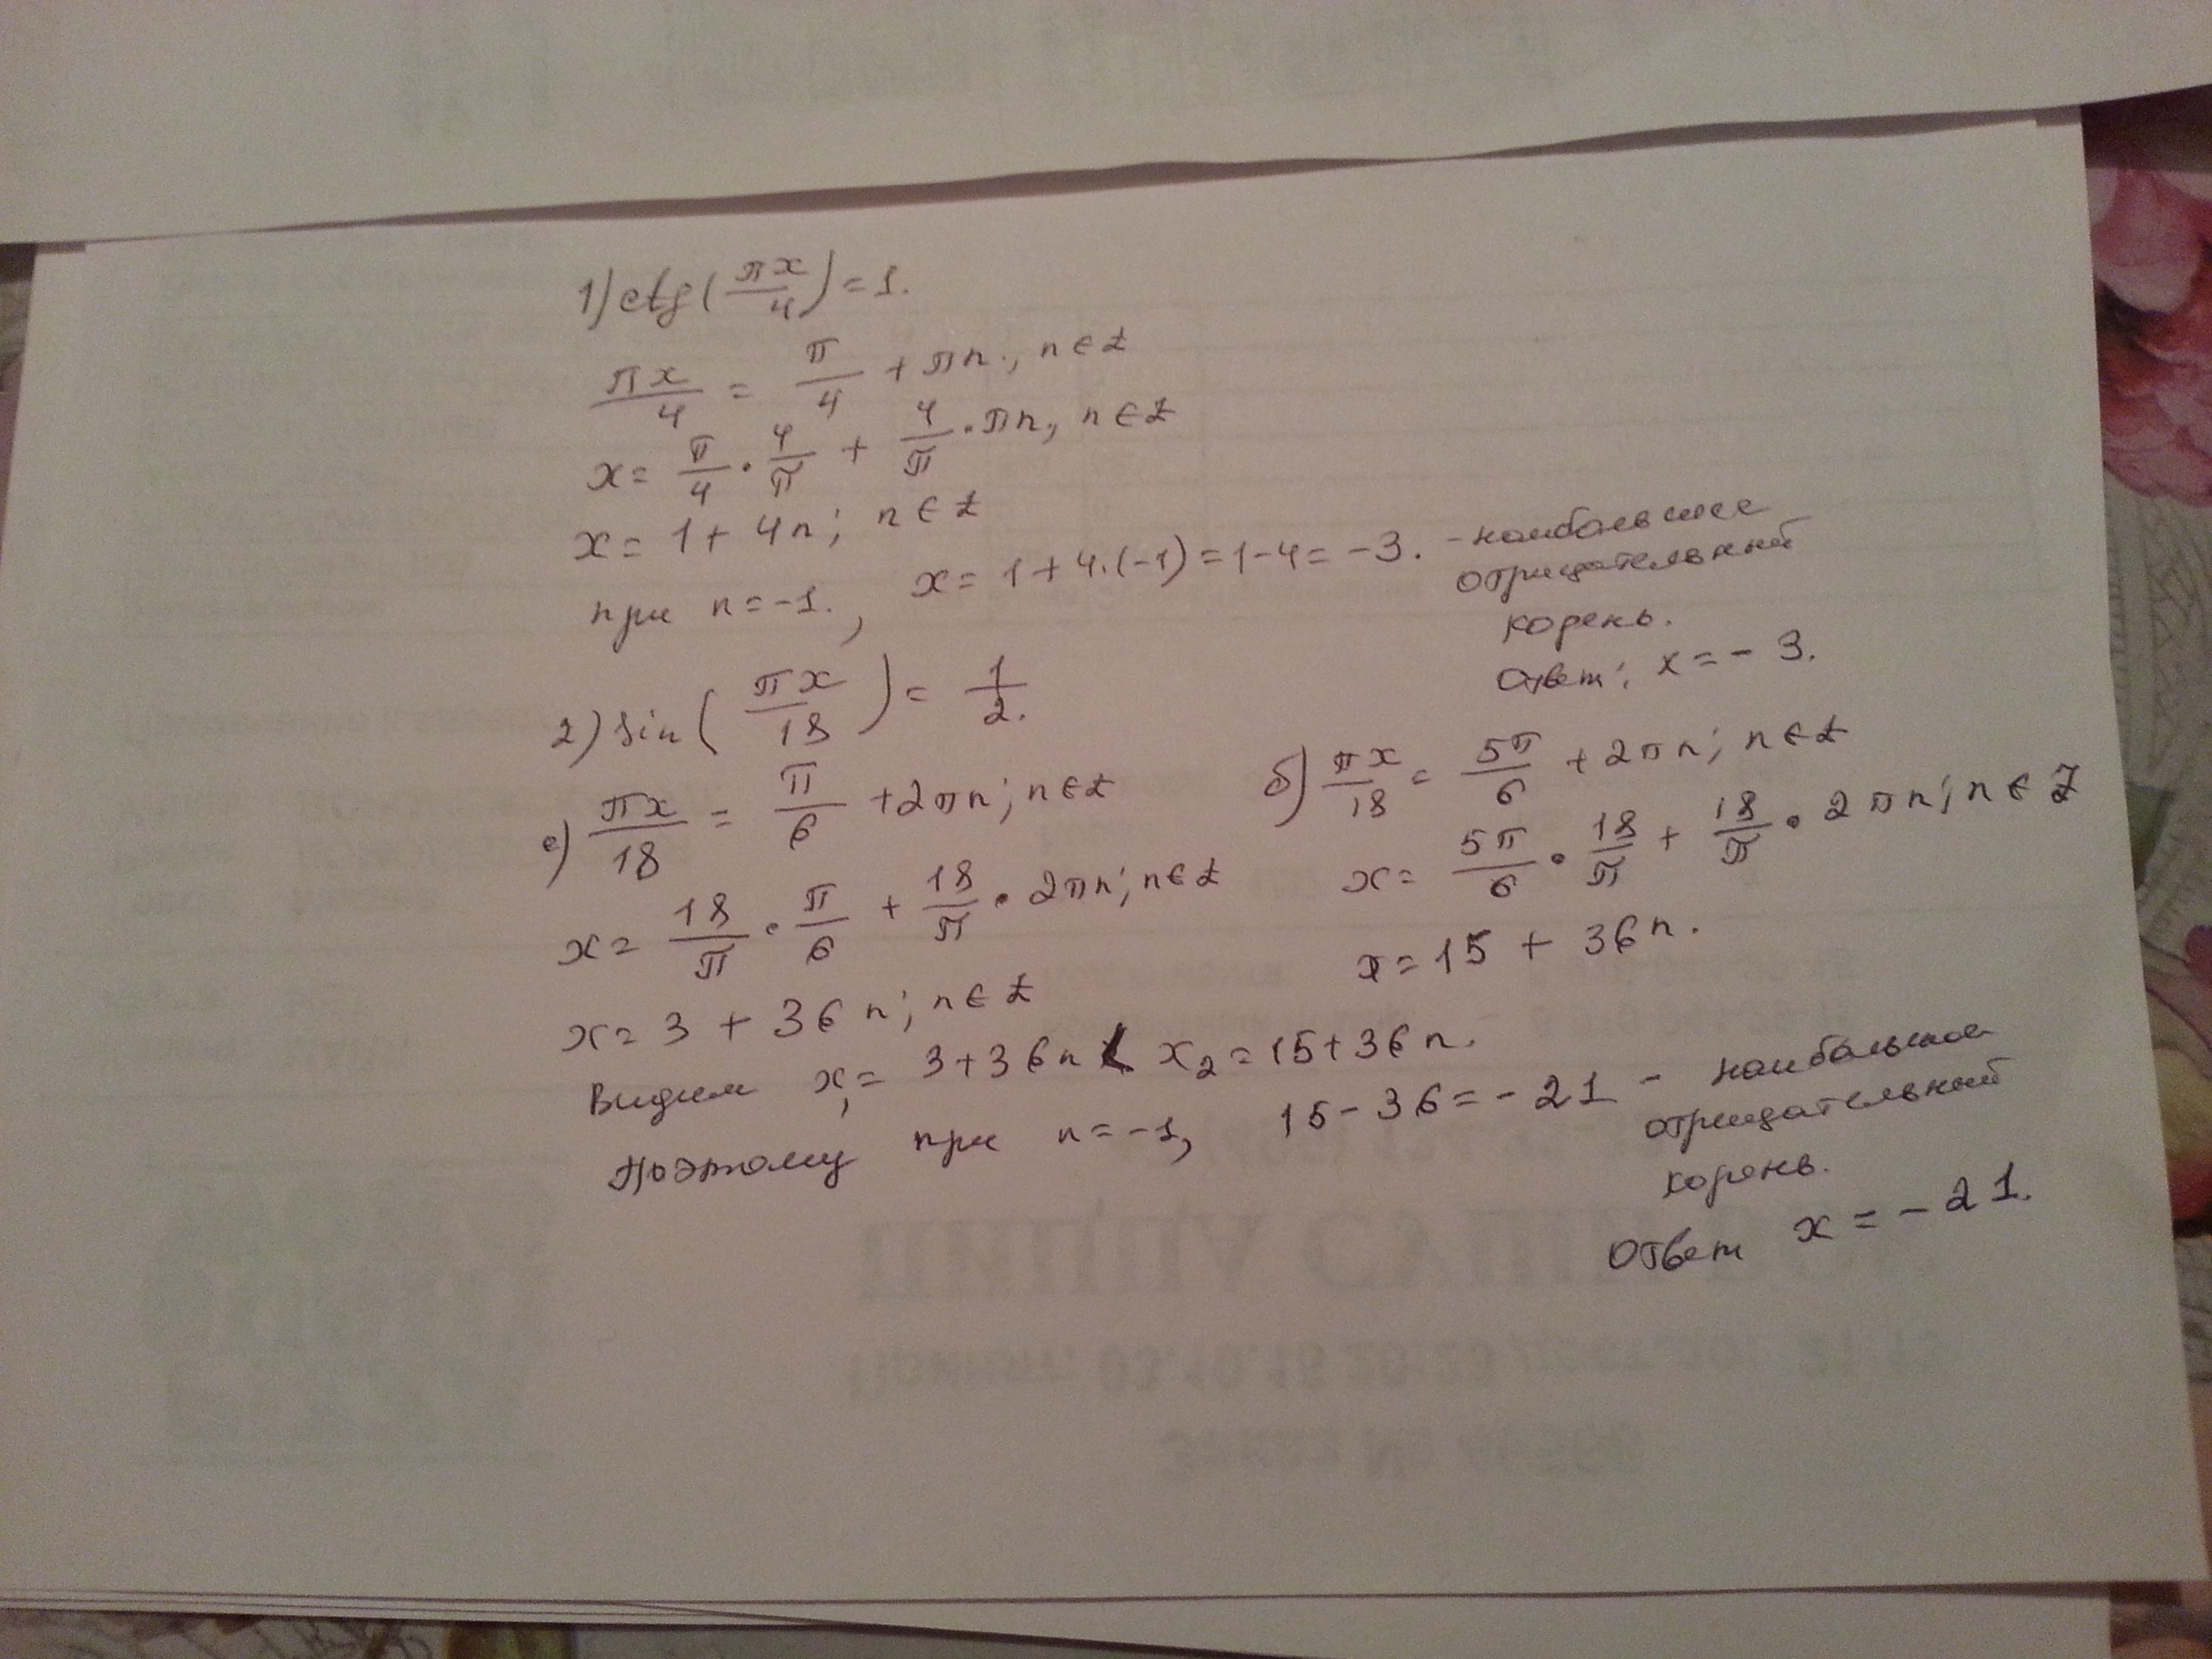 1) ctg(πx/4) = 1.
πx/4 = π/4 + πn., n ∈ Z
x = π/4 · 4/π + 4/π · πn, n ∈ Z
x = 1 + 4n; n ∈ Z
при n = -1., x = 1 + 4·(-1) = 1 - 4 = -3. - наибольшее
отрицательный
корень.
Ответ: x = - 3.
2) sin(πx/18) = 1/2.
а) πx/18 = π/6 + 2πn; n ∈ Z
x = 18/π · π/6 + 18/π · 2πn; n ∈ Z
x = 3 + 36n; n ∈ Z
б) πx/18 = 5π/6 + 2πn; n ∈ Z
x = 5π/6 · 18/π + 18/π · 2πn; n ∈ Z
x = 15 + 36n.
Видим x₁ = 3 + 36n < x₂ = 15 + 36n.
Поэтому при n = -1, 15 - 36 = - 21 - наибольшое
отрицательный
корень.
Ответ x = - 21.